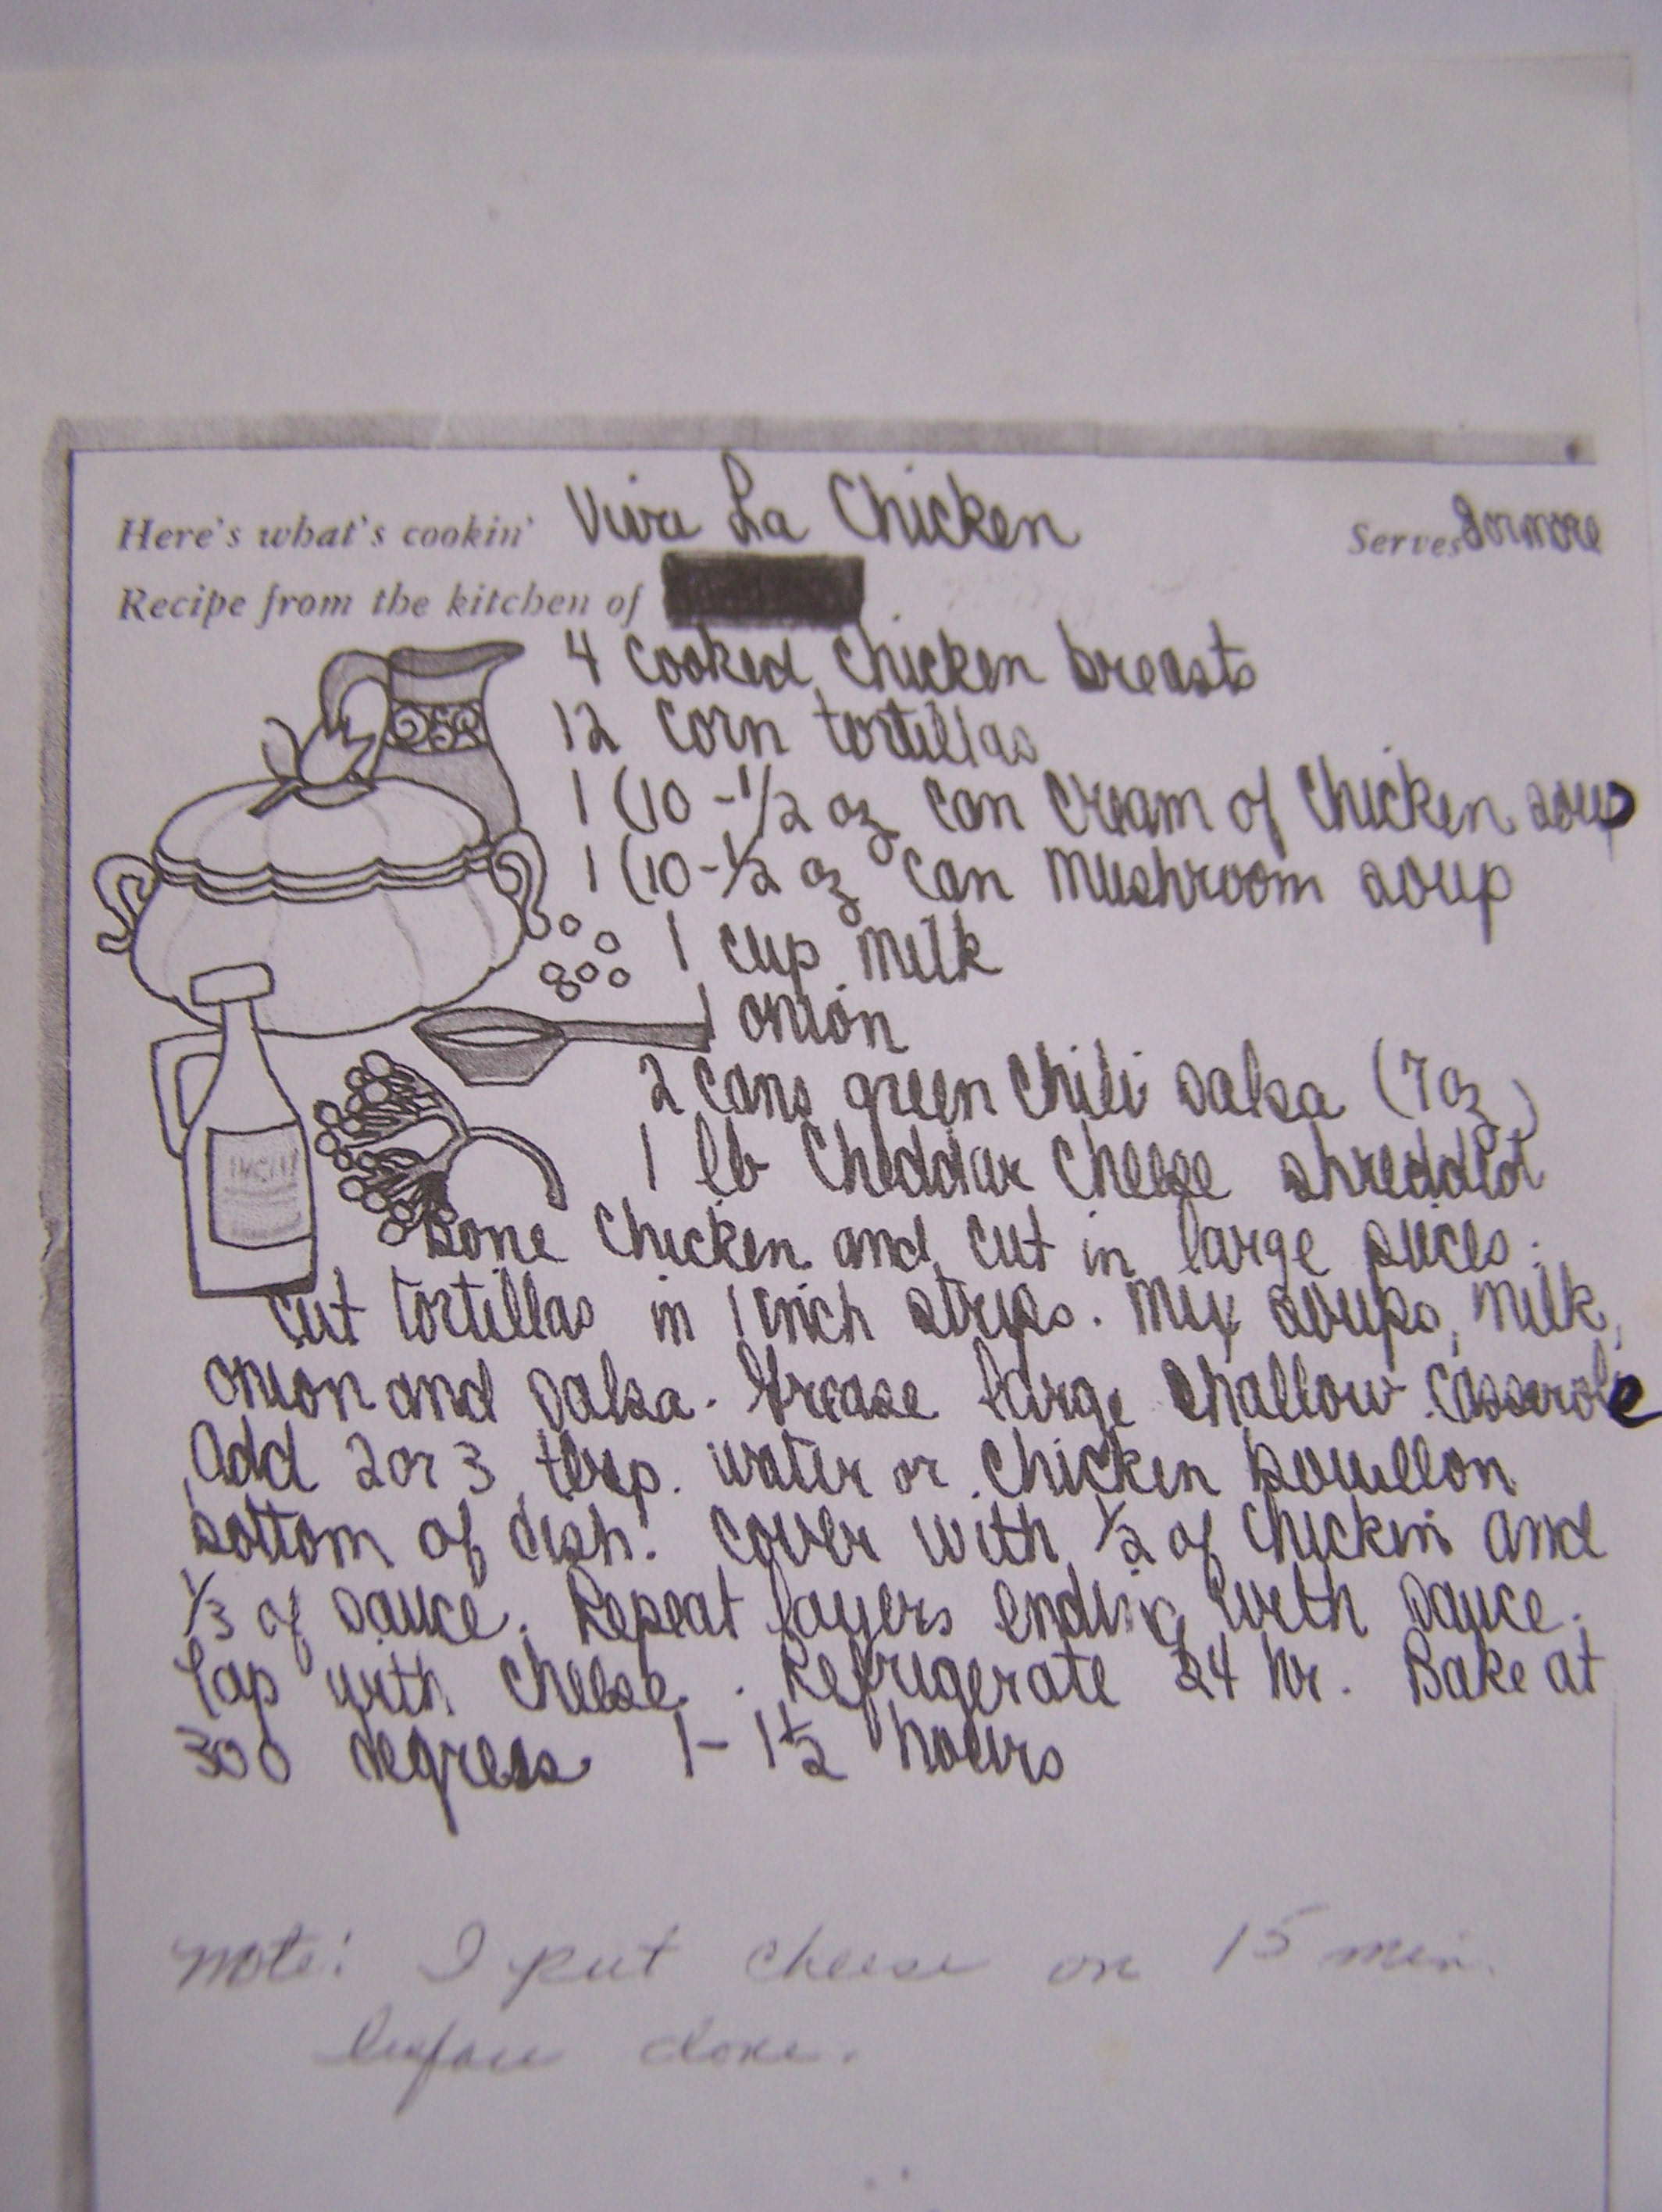 Here's what's cookin' Viva La Chicken Serves 8 or more
Recipe from the kitchen of
4 cooked chicken breasts
12 corn tortillas
1 (10-1/2 oz can cream of chicken soup
1 (10-1/2 oz can mushroom soup
1 cup milk
1 onion
2 cans green chili salsa (7oz)
1 lb cheddar cheese shredded
Bone chicken and cut in large pieces.
Cut tortillas in 1 inch strips. Mix soups, milk,
onion and salsa. Grease large shallow casserole
Add 2 or 3 tbsp. water or chicken bouillon
bottom of dish. Cover with 1/2 of chicken and
1/3 of sauce. Repeat layers ending with sauce.
Top with cheese. Refrigerate 24 hr. Bake at
300 degrees 1-1 1/2 hours
Note: I put cheese on 15 min.
before done.